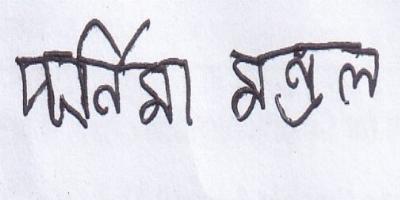 পূর্নিমা মণ্ডল